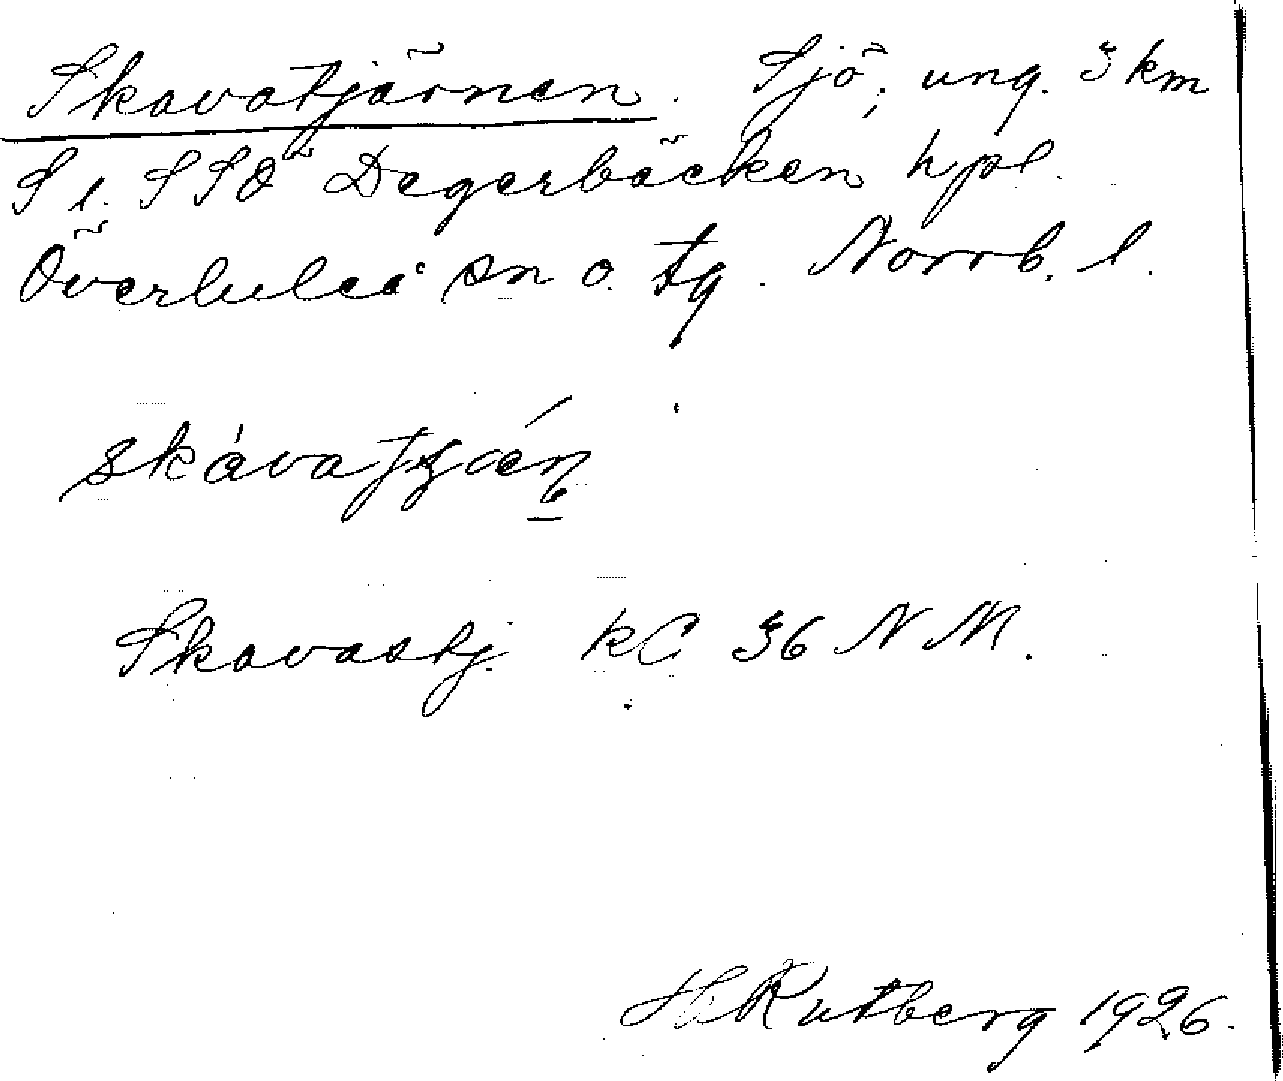 Skavatjärnen. Sjö; ung. 3 km
S l. SSÖ Degerbäcken hpl.
Överluleå sn o. tg. Norrb. l.
Skavastj. kC 36 NM.
H. Rutberg 1926.